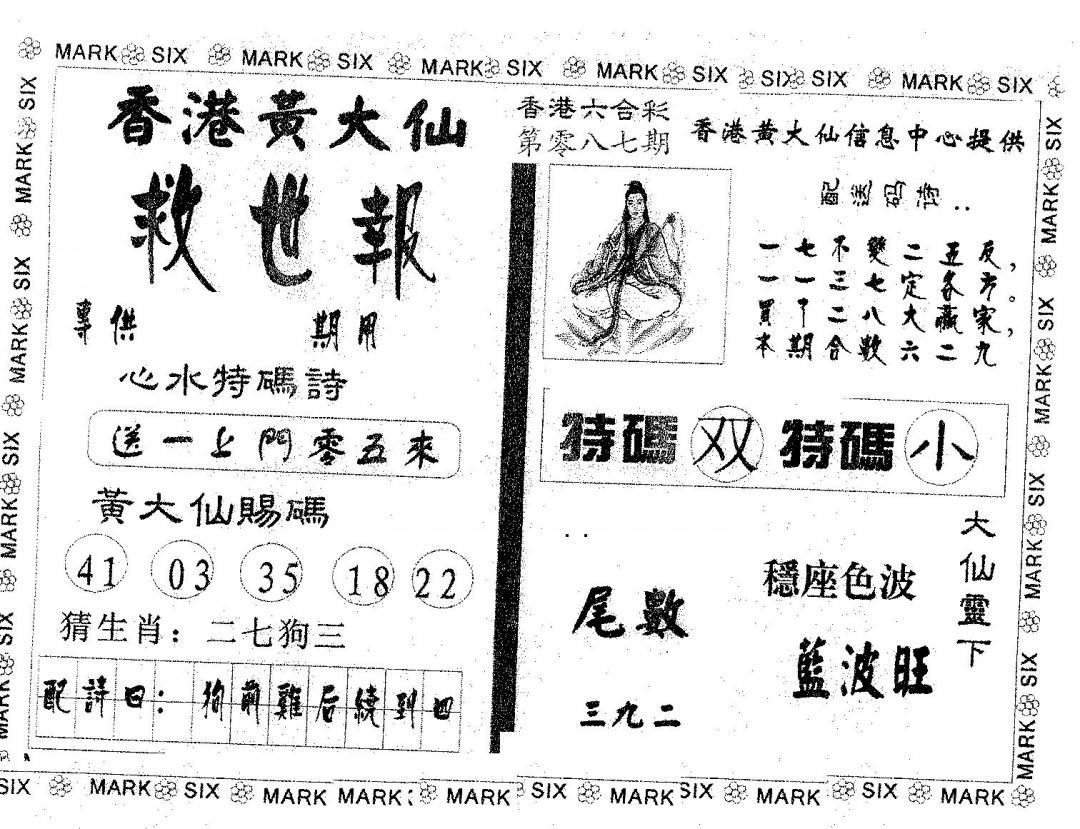 MARK SIX MARK SIX MARK SIX MARK SIX SIX SIX MARK SIX
香港黃大仙
救世報
專供 期用
心水特碼詩
送一上門零五來
黃大仙賜碼
41 03 35 18 22
猜生肖：二七狗三
配詩曰：狗前雞后繞到四
香港六合彩
第零八七期
香港黃大仙信息中心提供
配送码诗：
一七不變二五反，
一一三七定各方。
買下二八大贏家，
本期合數六二九
特碼 双 特碼 小
尾數
三九二
穩座色波
藍波旺
大仙靈下
MARK SIX MARK SIX MARK SIX MARK SIX MARK SIX
MARK SIX MARK SIX MARK SIX MARK SIX
SIX MARK SIX MARK MARK MARK SIX MARK SIX MARK SIX MARK